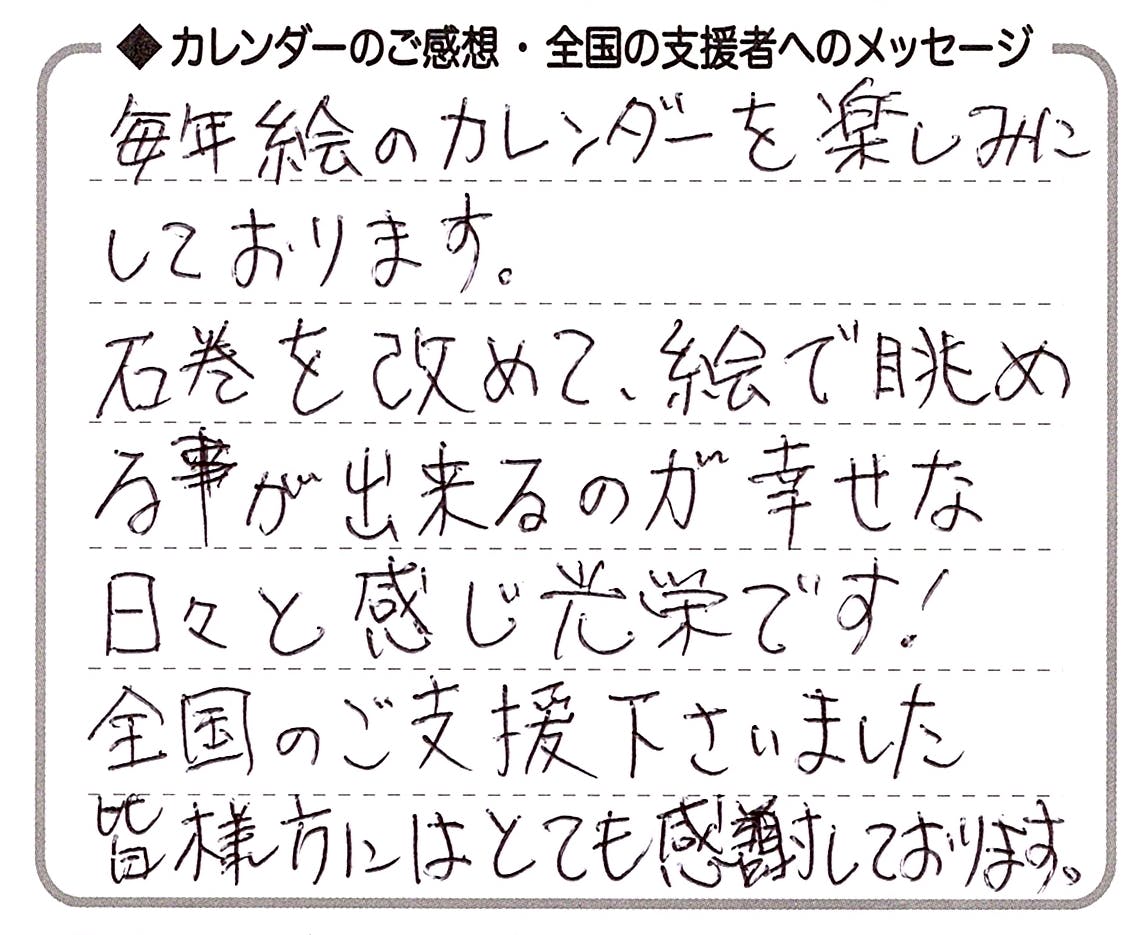 ◆カレンダーのご感想・全国の支援者へのメッセージ
毎年絵のカレンダーを楽しみに
しております。
石巻を改めて、絵で眺め
る事が出来るのが幸せな
日々と感じ光栄です!
全国のご支援下さいました
皆様方にはとても感謝しております。